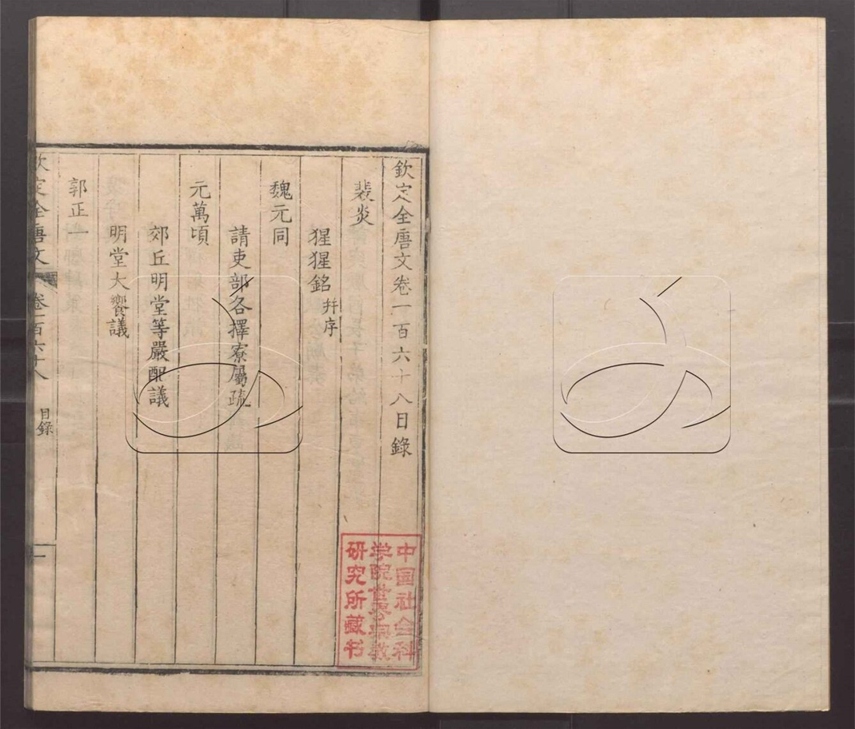 欽定全唐文卷一百六十八目錄
裴炎
猩猩銘幷序
魏元同
請吏部各擇寮屬疏
元萬頃
郊丘明堂等嚴配議
明堂大饗議
郭正一
欽定全唐文 卷一百六十八 目錄 一
中国社会科
学院世界宗教
研究所藏书